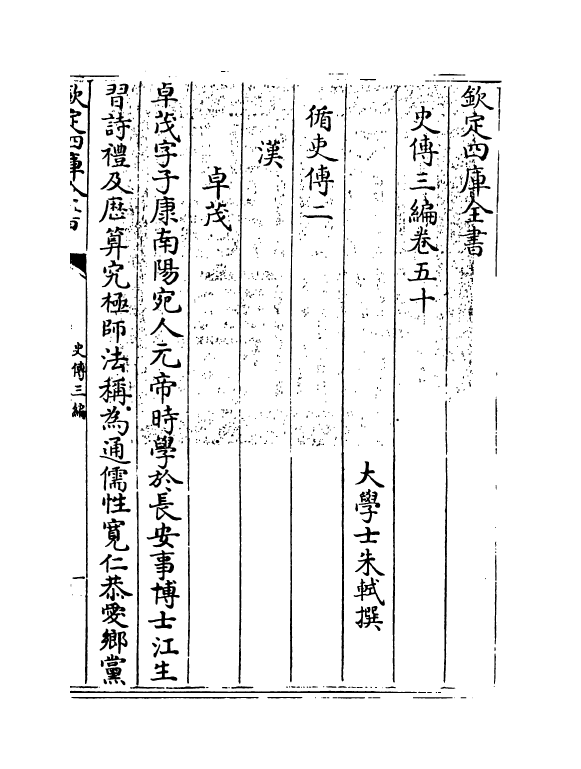 欽定四庫全書
史傳三編卷五十
大學士朱軾撰
循吏傳二
漢
卓茂
卓茂字子康南陽宛人元帝時學於長安事博士江生
習詩禮及厯算究極師法稱為通儒性寛仁恭愛鄉黨
欽定四庫全書
史傳三編
一